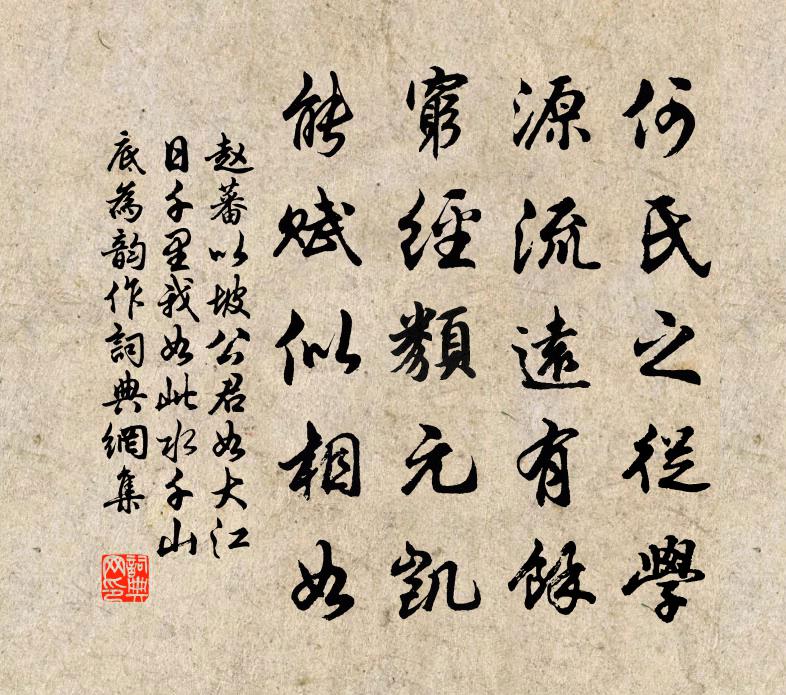 何氏之從學
源流遠有餘
窮經類元凱
能賦似相如
赵蕃以坡公君如大江
日千里我如此水千山
底為韵作詞典網集
詞典网印